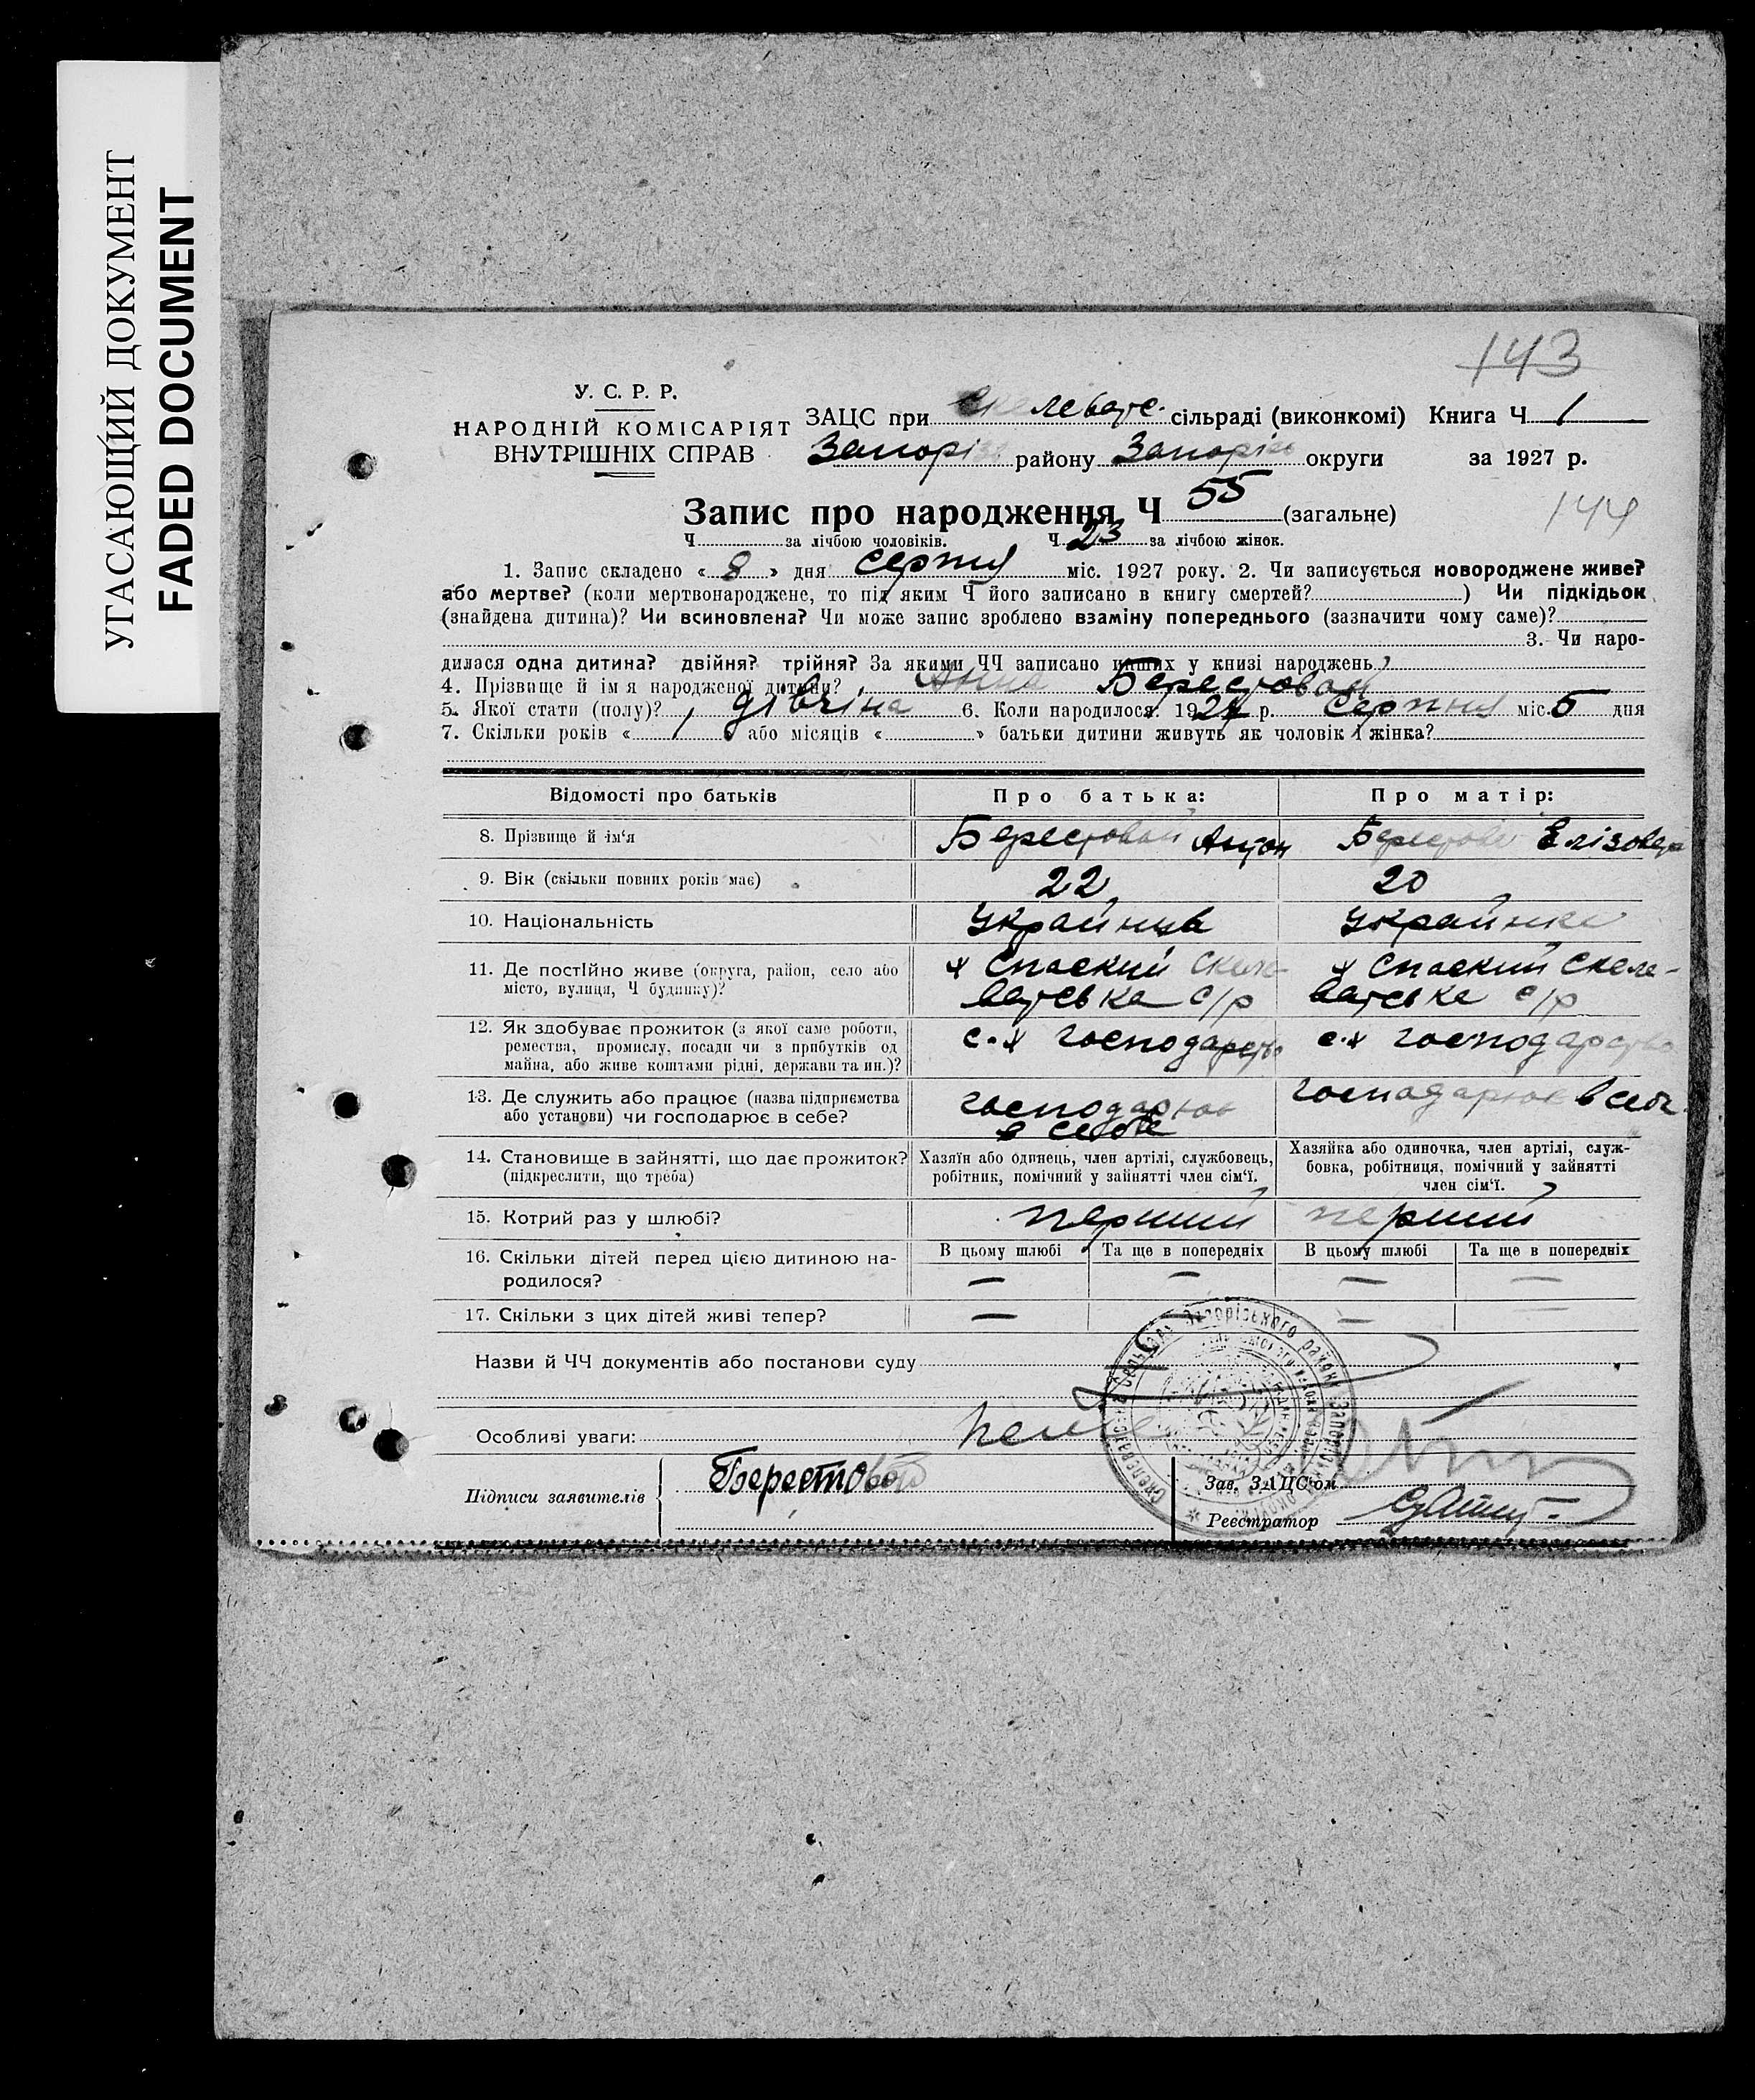 УГАСАЮЩИЙ ДОКУМЕНТ
FADED DOCUMENT
143
У. С. Р. Р.
НАРОДНІЙ КОМІСАРІЯТ
ВНУТРІШНІХ СПРАВ
ЗАЦС при Скелеватс. сільраді (виконкомі) Книга Ч. 1
Запоріз району Запоріз округи за 1927 р.
Запис про народження Ч 55 (загальне)
144
Ч. за лічбою чоловіків. Ч. 23 за лічбою жінок.
1. Запис складено « 8 » дня серпня міс. 1927 року. 2. Чи записується новороджене живе?
або мертве? (коли мертвонароджене, то під яким Ч його записано в книгу смертей? ) Чи підкідьок
(знайдена дитина)? Чи всиновлена? Чи може запис зроблено взаміну попереднього (зазначити чому саме)?
3. Чи наро-
дилася одна дитина? двійня? трійня? За якими ЧЧ записано инших у книзі народжень?
4. Прізвище й ім я народженої дитини? Анна Берестовой
5. Якої стати (полу)? дівчіна 6. Коли народилося: 1927 р. Серпня міс. 5 дня
7. Скільки років « або місяців « » батьки дитини живуть як чоловік і жінка?
Відомості про батьків Про батька: Про матір:
8. Прізвище й ім'я Берестовой Антон Берестова Елізовета
9. Вік (скільки повних років має) 22 20
10. Національність Україниць Українка
11. Де постійно живе (округа, район, село або х Спаский Скеле- х Спаский Скеле-
місто, вулиця, Ч будинку)? ватсвка с/р ватсвка с/р
12. Як здобуває прожиток (з якої саме роботи, с.х господарство с.х господарство
ремества, промислу, посади чи з прибутків од
майна, або живе коштами рідні, держави та ин.)?
13. Де служить або працює (назва підприємства господарює господарює в себе
або установи) чи господарює в себе? в себе
14. Становище в зайнятті, що дає прожиток? Хазяїн або одинець, член артілі, службовець, Хазяйка або одиночка, член артілі, служ-
(підкреслити, що треба) робітник, помічний у зайнятті член сім'ї. бовка, робітниця, помічний у зайнятті
член сім'ї.
15. Котрий раз у шлюбі? перший перший
16. Скільки дітей перед цією дитиною на- В цьому шлюбі Та ще в попередніх В цьому шлюбі Та ще в попередніх
родилося? — — — —
17. Скільки з цих дітей живі тепер? — — —
Назви й ЧЧ документів або постанови суду
Особливі уваги:
Підписи заявителів Берестовой Зав. ЗАЦС'ом
Реєстратор